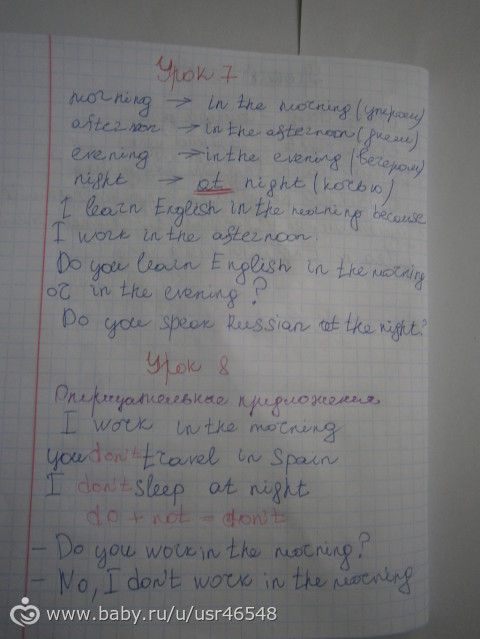 Урок 7
morning → in the morning (утром)
afternoon → in the afternoon (днем)
evening → in the evening (вечером)
night → at night (ночью)
I learn English in the morning because
I work in the afternoon.
Do you learn English in the morning
or in the evening?
Do you speak Russian at the night?
Урок 8
Отрицательные предложения
I work in the morning
you don't travel in Spain
I don't sleep at night
do + not = don't
- Do you work in the morning?
- No, I don't work in the morning
www.baby.ru/u/usr46548